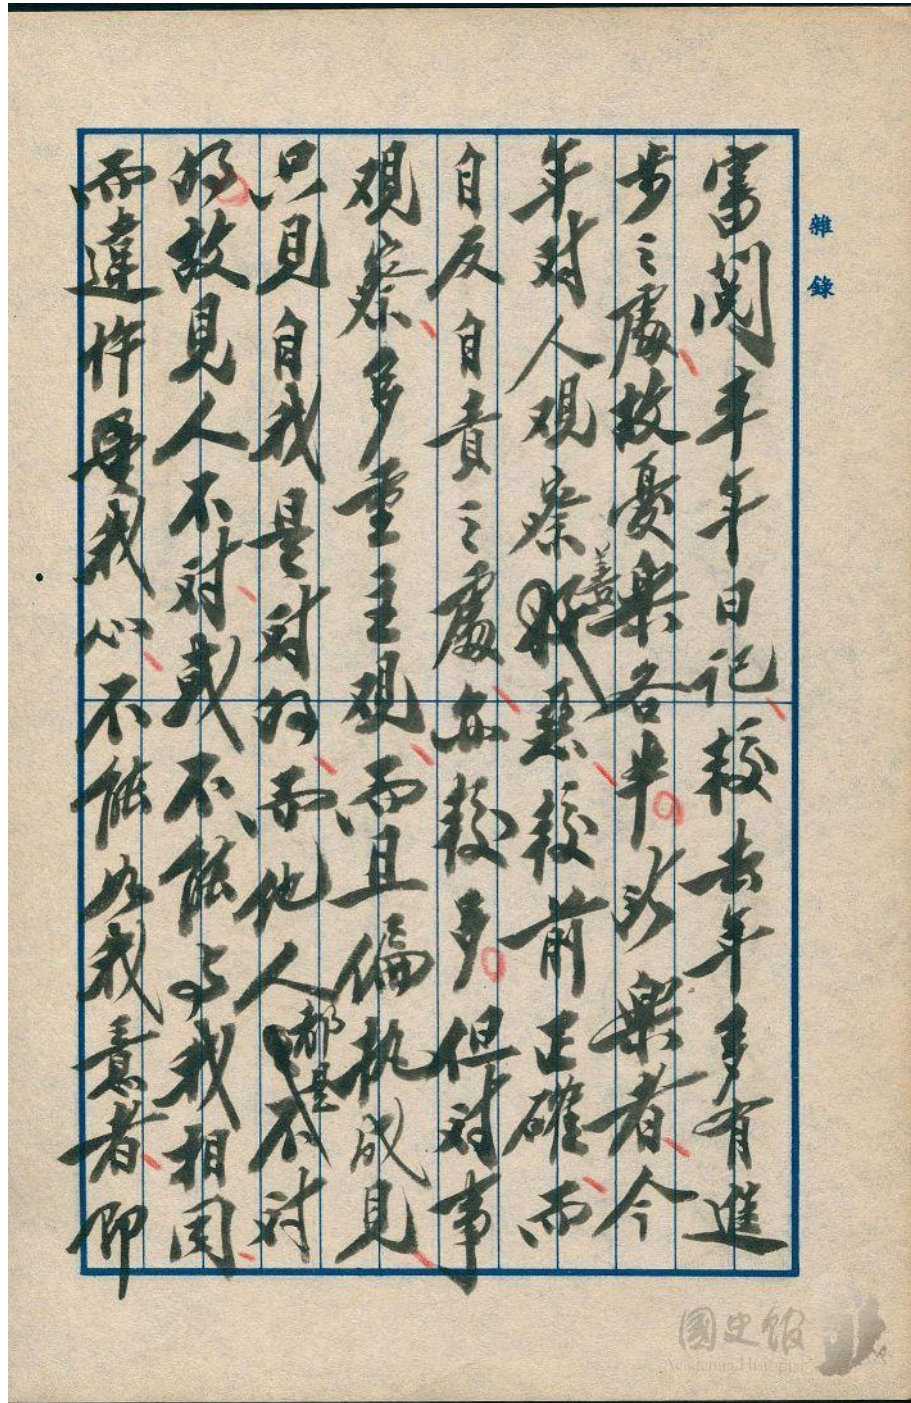 雜錄
審閱本年日記、較去年多有進
步之處、故憂樂各半。所樂者、今
年對人觀察善惡、較前正確、而
自反自責之處、亦較多。但對事
觀察、多重主觀、而且偏執成見、
只見自我是對的、而他人都是不對
的。故見人不對、或不能与我相同、
而違忤我心、不能如我意者、即
國史館
Academia Historica